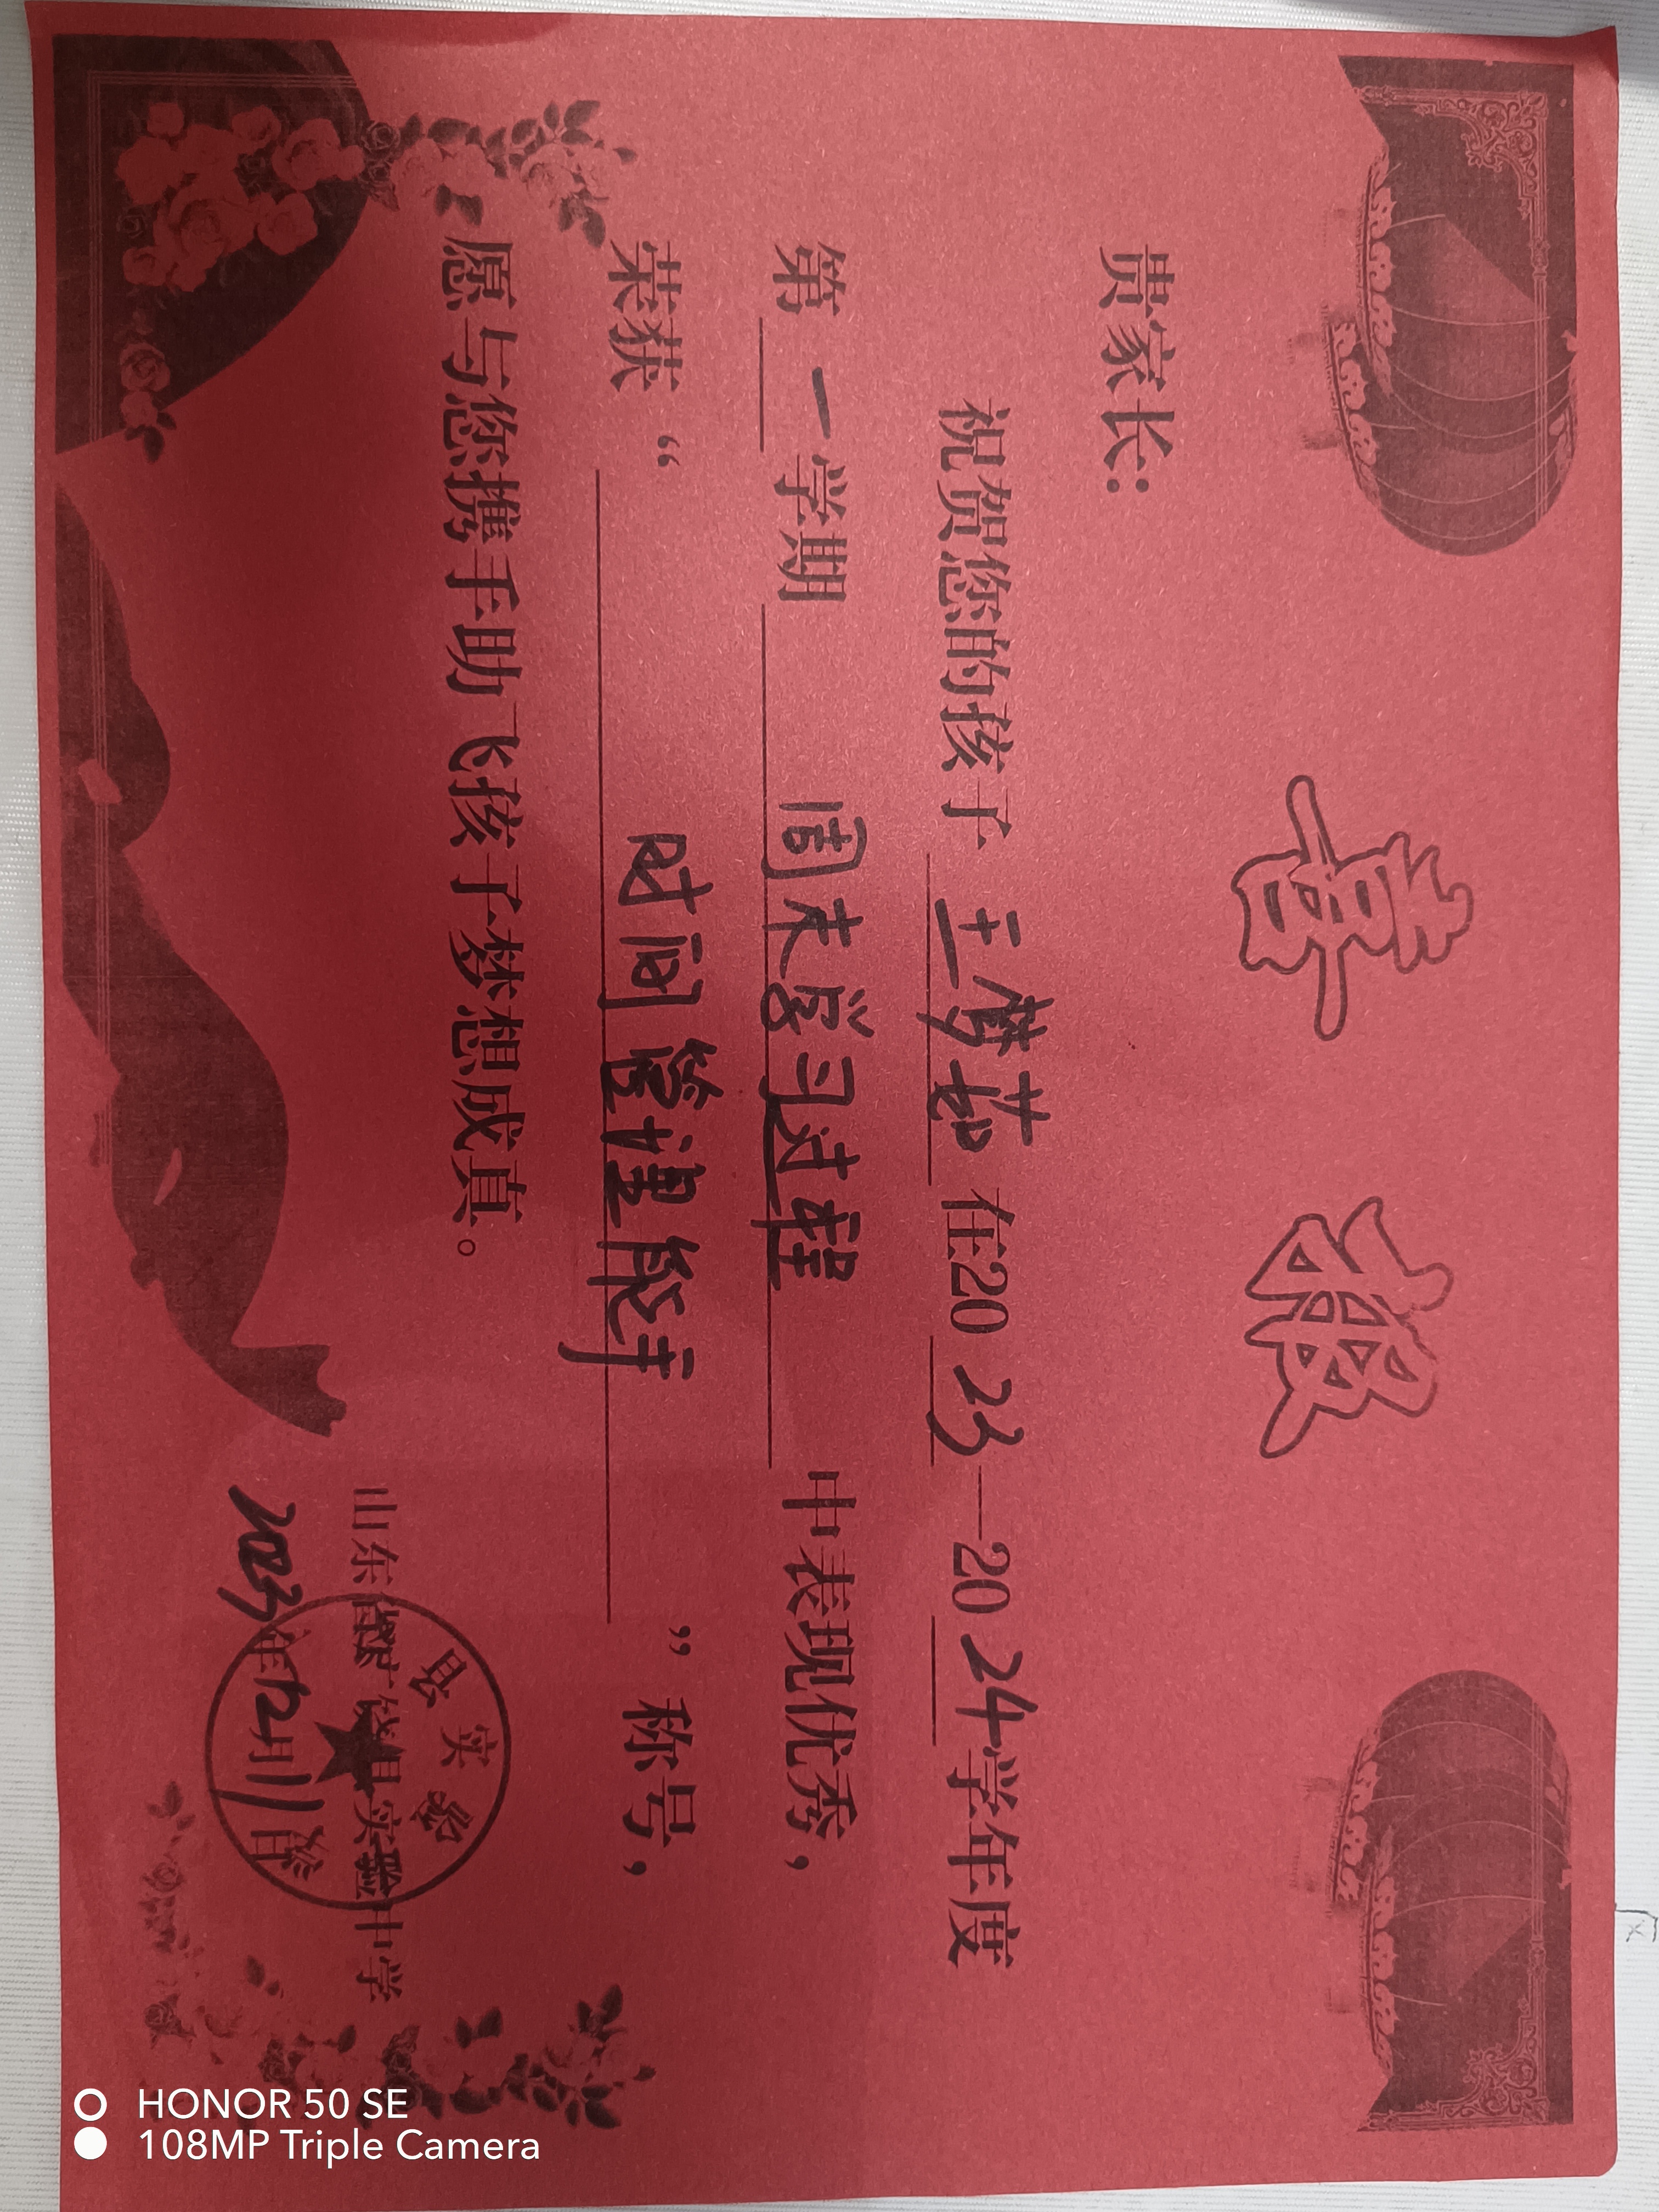 喜报
贵家长：
祝贺您的孩子 王梦茹 在2023—2024学年度
第一学期 周末学习过程 中表现优秀，
荣获“ 时间管理能手 ”称号，
愿与您携手助飞孩子梦想成真。
山东省广饶县实验中学
2023年12月11日
县实验
HONOR 50 SE
108MP Triple Camera